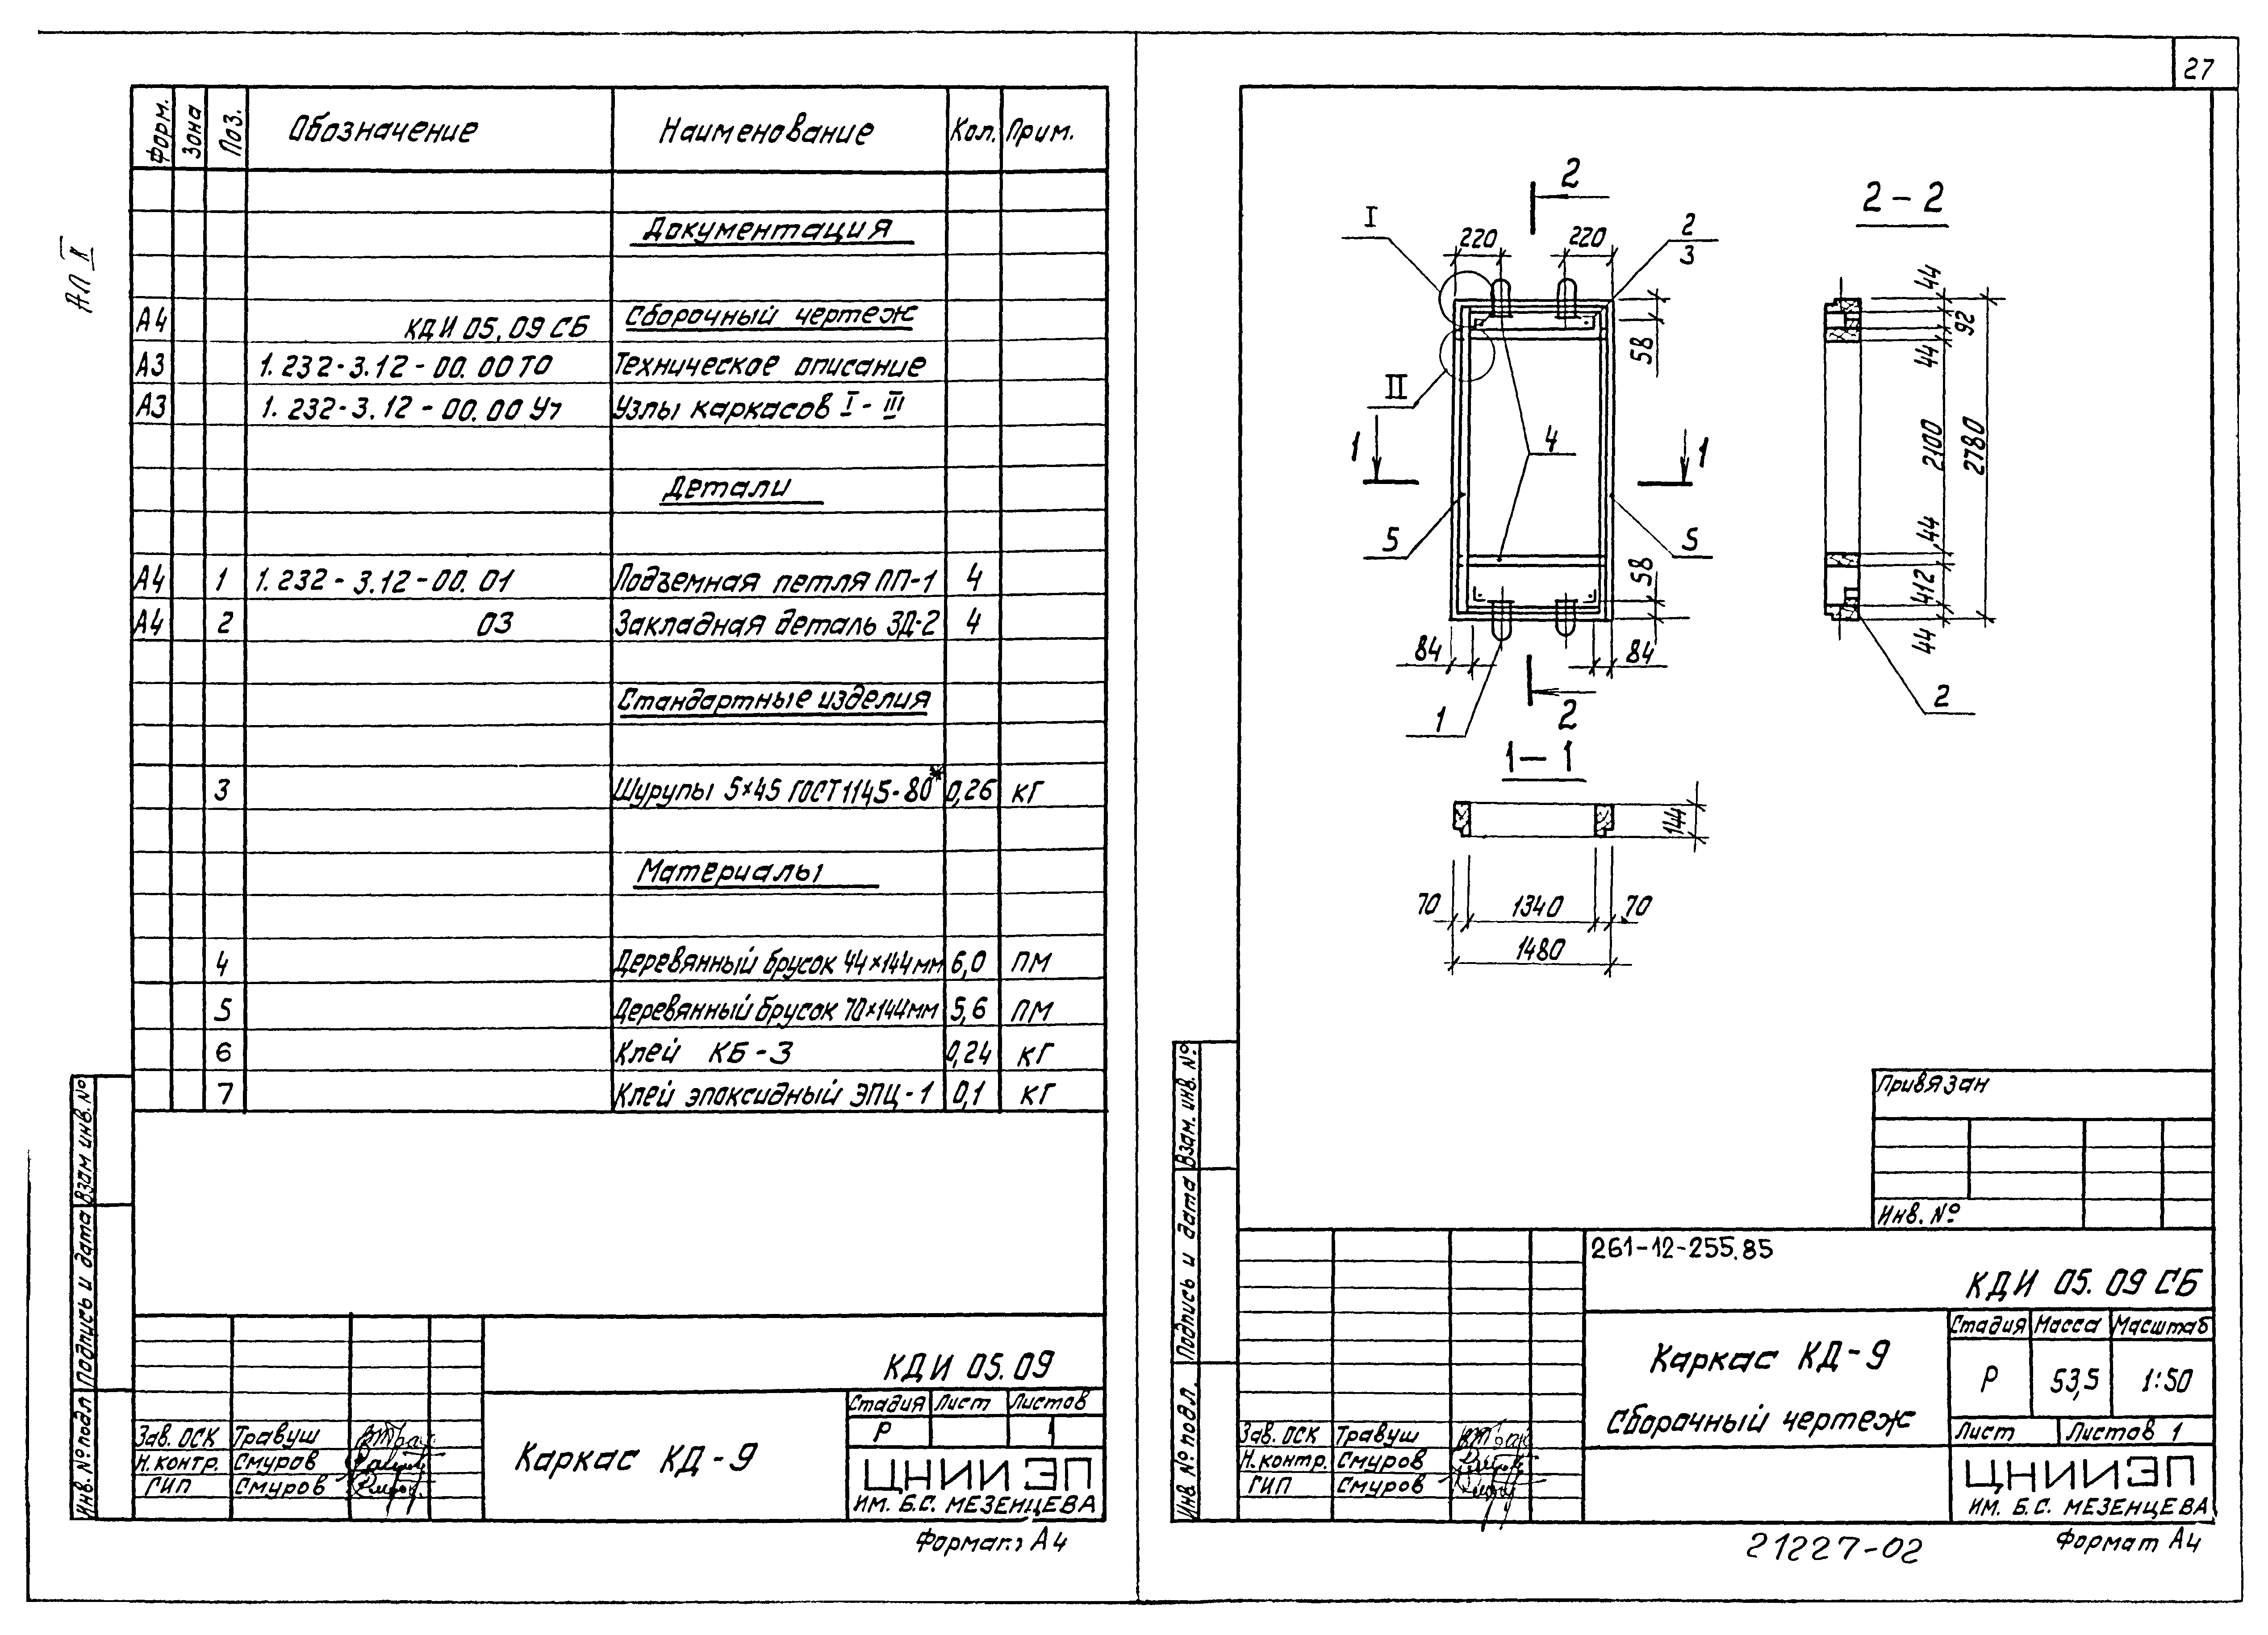 27
АЛ II
Форм. Зона Поз. Обозначение Наименование Кол. Прим.
Документация
А4 КДИ 05.09 СБ Сборочный чертеж
А3 1.232-3.12-00.00 ТО Техническое описание
А3 1.232-3.12-00.00 Уч Узлы каркасов I-III
Детали
А4 1 1.232-3.12-00.01 Подъемная петля ПП-1 4
А4 2 03 Закладная деталь ЗД-2 4
Стандартные изделия
3 Шурупы 5×45 ГОСТ 1145-80* 0,26 кг
Материалы
4 Деревянный брусок 44×144мм 6,0 ПМ
5 Деревянный брусок 70×144мм 5,6 ПМ
6 Клей КБ-3 0,24 кг
7 Клей эпоксидный ЭПЦ-1 0,1 кг
Инв. № подл Подпись и дата Взам инв. №
КДИ 05.09
Стадия Лист Листов
Р 1
Зав. ОСК Травуш
Н.контр. Смуров
ГИП Смуров
Каркас КД-9
ЦНИИЭП
ИМ. Б.С. МЕЗЕНЦЕВА
Формат А4
2
2-2
I
220 220
2
3
58
II
1 1
4
5 5
58
84 84
1
2
44
92
44
2100
2780
44
412
44
2
1-1
144
70 1340 70
1480
Привязан
Инв. №
Инв. № подл. Подпись и дата Взам. инв. №
261-12-255.85
КДИ 05.09 СБ
Каркас КД-9
Сборочный чертеж
Стадия Масса Масштаб
Р 53,5 1:50
Лист Листов 1
Зав. ОСК Травуш
Н.контр. Смуров
ГИП Смуров
ЦНИИЭП
ИМ. Б.С. МЕЗЕНЦЕВА
21227-02
Формат А4